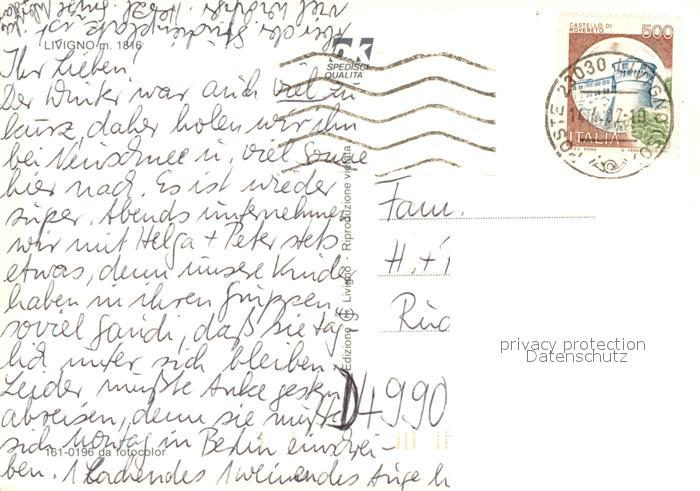 LIVIGNO m. 1816
Ihr Lieben!
Der Winter war auch viel zu
kurz, daher holen wir ihn
bei Neuschnee u. viel Sonne
hier nach. Es ist wieder
super. Abends unternehmen
wir mit Helga + Peter stets
etwas, denn unsere Kinder
haben in ihren Gruppen
soviel Gaudi, daß sie täg-
lich unter sich bleiben.
Leider mußte Anke gestern
abreisen, denn sie mußte
sich Montag in Berlin einschrei-
ben. 1 lachendes 1 weinendes Auge h
161-0196 da fotocolor
SPEDISCI
QUALITÀ
Edizione Livigno Riproduzione vietata
CASTELLO DI
ROVERETO
500
ITALIA
POSTE 23030 LIVIGNO
Fam.
H. +
Rüd
D 4990
privacy protection
Datenschutz